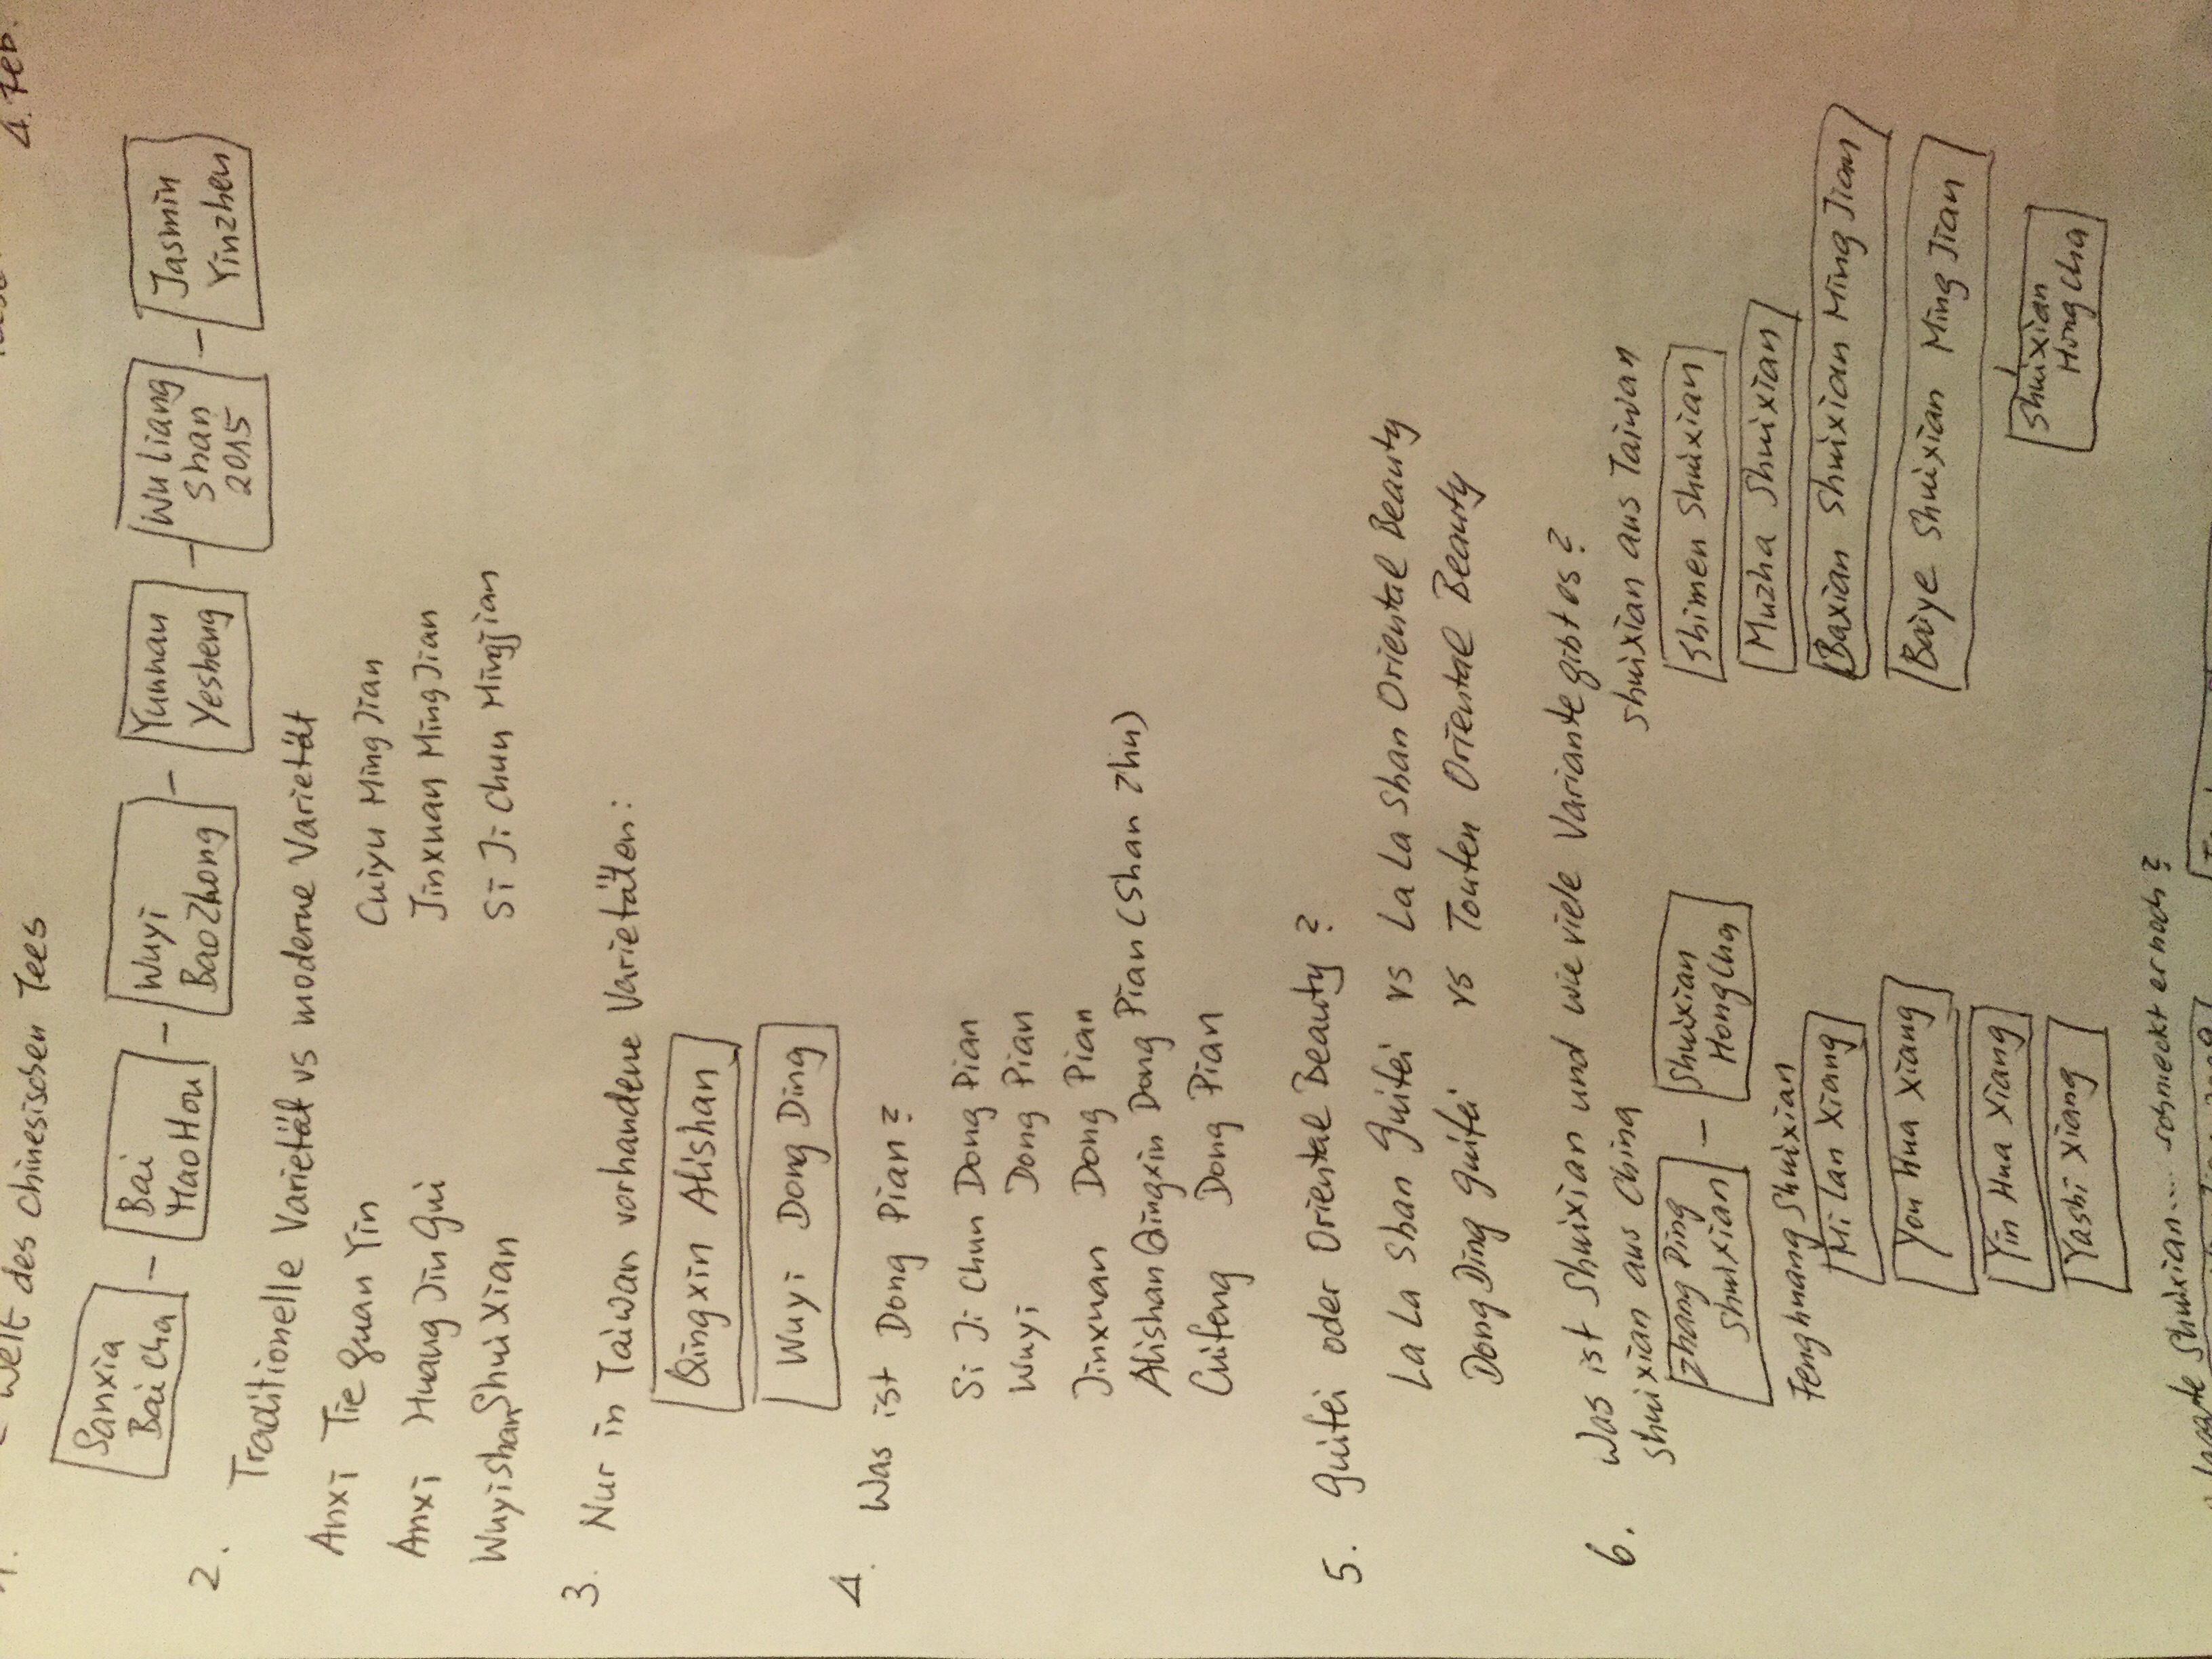 4. Feb.
Welt des chinesischen Tees
Sanxia Bai Cha - Bai Hao Hou - Wuyi BaoZhong - Yunnan Yesheng - Wu Liang Shan 2015 - Jasmin Yinzhen
2. Traditionelle Varietät vs moderne Varietät
Anxi Tie Guan Yin Cuiyu Ming Jian
Anxi Huang Jin Gui Jinxuan Ming Jian
Wuyishan Shui Xian Si Ji Chun Mingjian
3. Nur in Taiwan vorhandene Varietäten:
Qingxin Alishan
Wuyi Dong Ding
4. Was ist Dong Pian?
Si Ji Chun Dong Pian
Wuyi Dong Pian
Jinxuan Dong Pian
Alishan Qingxin Dong Pian (Shan Zhu)
Cuifeng Dong Pian
5. Guifei oder Oriental Beauty?
La La Shan Guifei vs La La Shan Oriental Beauty
Dong Ding Guifei vs Touten Oriental Beauty
6. Was ist Shuixian und wie viele Variante gibt es?
Shuixian aus China Shuixian aus Taiwan
Zhang Ping Shuixian - Shuixian HongCha
Fenghuang Shuixian
Mi Lan Xiang
You Hua Xiang
Yin Hua Xiang
Yashi Xiang
Shimen Shuixian
Muzha Shuixian
Baxian Shuixian Ming Jian
Baiye Shuixian Ming Jian
Shuixian Hong Cha
Shuixian..... schmeckt er noch?